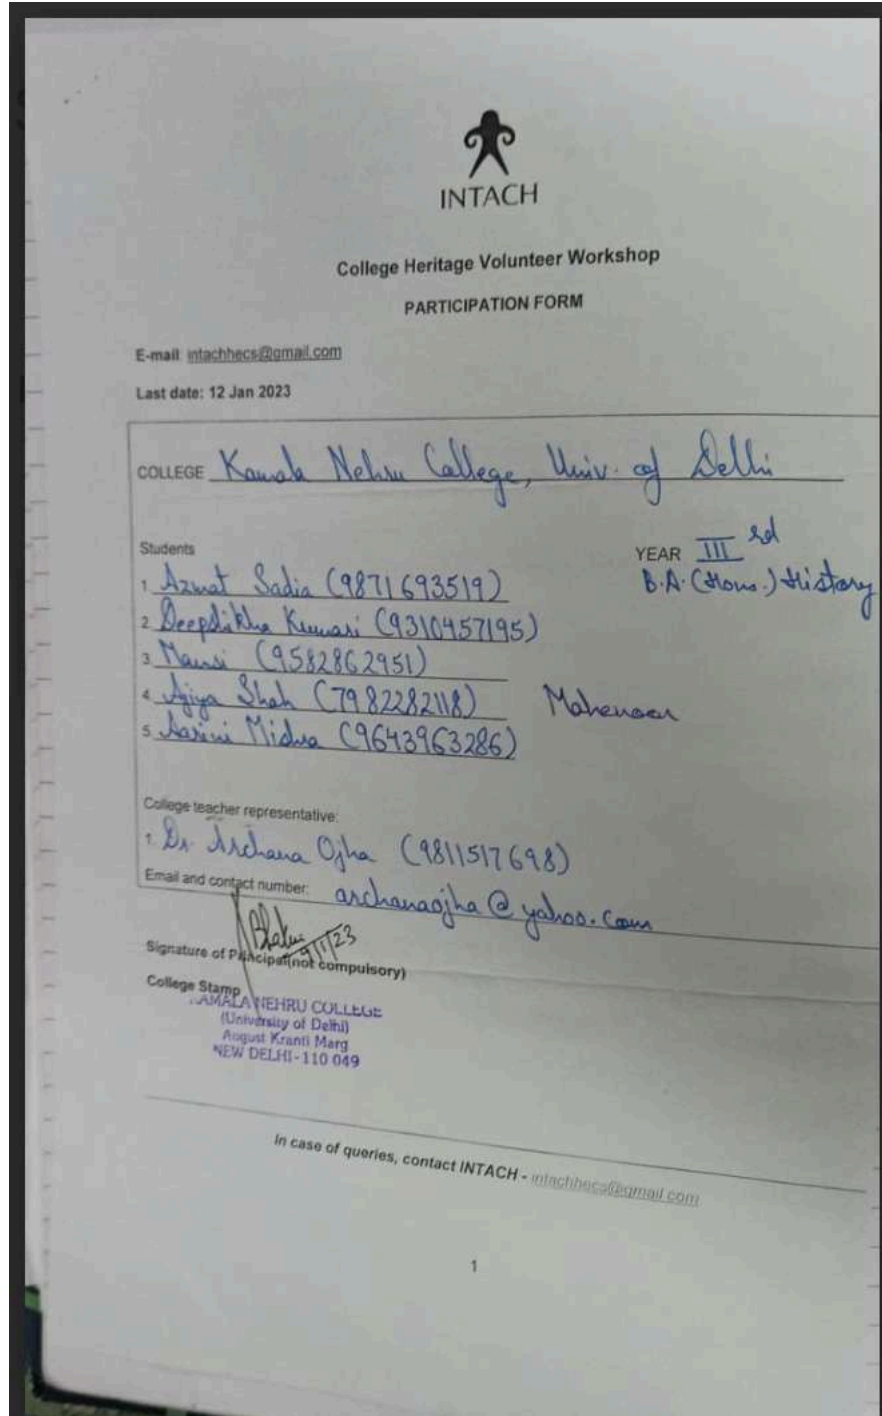 INTACH
College Heritage Volunteer Workshop
PARTICIPATION FORM
E-mail: intachhecs@gmail.com
Last date: 12 Jan 2023
COLLEGE Kamala Nehru College, Univ. of Delhi
Students
YEAR III rd
B.A. (Hons.) History
1. Azmat Sadia (9871693519)
2. Deepshikha Kumari (9310457195)
3. Mansi (9582862951)
4. Aziya Shah (7982282118) Mahenoor
5. Aarini Mishra (9643963286)
College teacher representative:
1. Dr. Archana Ojha (9811517698)
Email and contact number: archanaojha@yahoo.com
9/1/23
Signature of Principal(not compulsory)
College Stamp
KAMALA NEHRU COLLEGE
(University of Delhi)
August Kranti Marg
NEW DELHI-110 049
In case of queries, contact INTACH - intachhecs@gmail.com
1